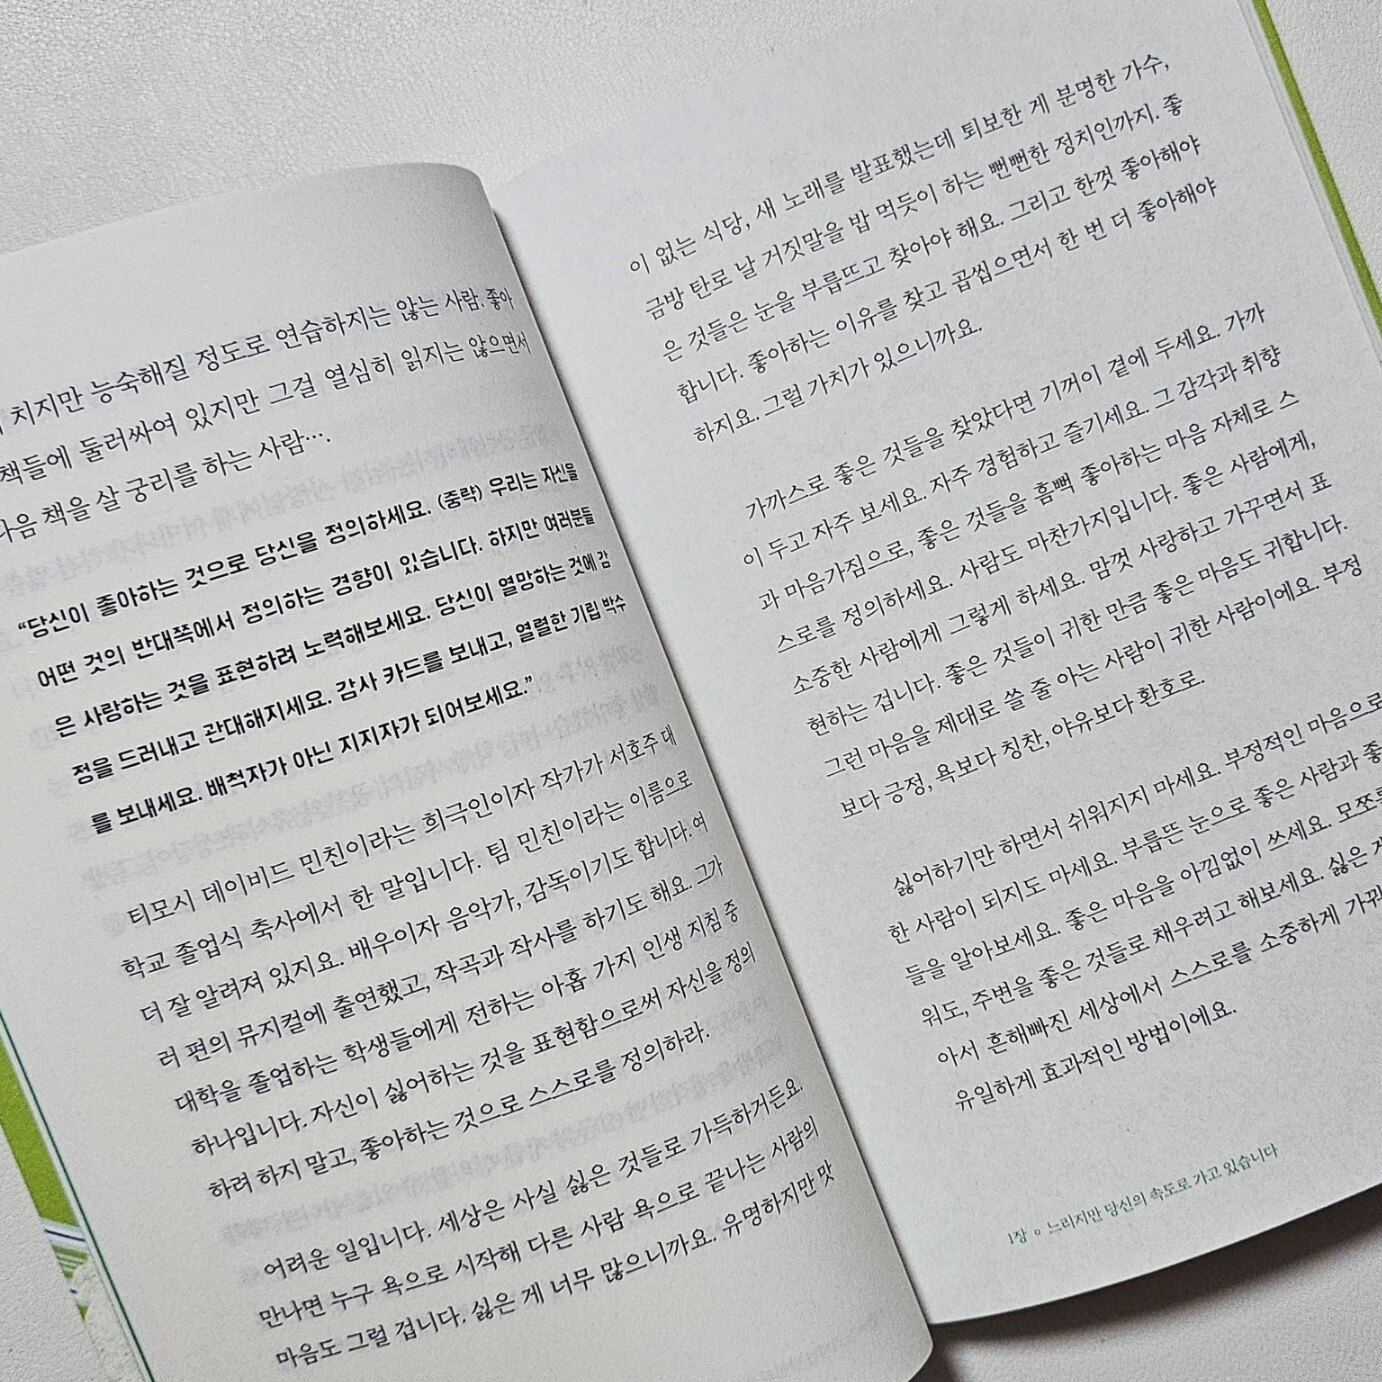 치지만 능숙해질 정도로 연습하지는 않는 사람. 좋아
책들에 둘러싸여 있지만 그걸 열심히 읽지는 않으면서
다음 책을 살 궁리를 하는 사람….
“당신이 좋아하는 것으로 당신을 정의하세요. (중략) 우리는 자신을
어떤 것의 반대쪽에서 정의하는 경향이 있습니다. 하지만 여러분들
은 사랑하는 것을 표현하려 노력해보세요. 당신이 열망하는 것에 감
정을 드러내고 관대해지세요. 감사 카드를 보내고, 열렬한 기립 박수
를 보내세요. 배척자가 아닌 지지자가 되어보세요.”
티모시 데이비드 민친이라는 희극인이자 작가가 서호주 대
학교 졸업식 축사에서 한 말입니다. 팀 민친이라는 이름으로
더 잘 알려져 있지요. 배우이자 음악가, 감독이기도 합니다. 여
러 편의 뮤지컬에 출연했고, 작곡과 작사를 하기도 해요. 그가
대학을 졸업하는 학생들에게 전하는 아홉 가지 인생 지침 중
하나입니다. 자신이 싫어하는 것을 표현함으로써 자신을 정의
하려 하지 말고, 좋아하는 것으로 스스로를 정의하라.
어려운 일입니다. 세상은 사실 싫은 것들로 가득하거든요.
만나면 누구 욕으로 시작해 다른 사람 욕으로 끝나는 사람의
마음도 그럴 겁니다. 싫은 게 너무 많으니까요. 유명하지만 맛
이 없는 식당, 새 노래를 발표했는데 퇴보한 게 분명한 가수,
금방 탄로 날 거짓말을 밥 먹듯이 하는 뻔뻔한 정치인까지. 좋
은 것들은 눈을 부릅뜨고 찾아야 해요. 그리고 한껏 좋아해야
합니다. 좋아하는 이유를 찾고 곱씹으면서 한 번 더 좋아해야
하지요. 그럴 가치가 있으니까요.
가까스로 좋은 것들을 찾았다면 기꺼이 곁에 두세요. 가까
이 두고 자주 보세요. 자주 경험하고 즐기세요. 그 감각과 취향
과 마음가짐으로, 좋은 것들을 흠뻑 좋아하는 마음 자체로 스
스로를 정의하세요. 사람도 마찬가지입니다. 좋은 사람에게,
소중한 사람에게 그렇게 하세요. 맘껏 사랑하고 가꾸면서 표
현하는 겁니다. 좋은 것들이 귀한 만큼 좋은 마음도 귀합니다.
그런 마음을 제대로 쓸 줄 아는 사람이 귀한 사람이에요. 부정
보다 긍정, 욕보다 칭찬, 야유보다 환호로.
싫어하기만 하면서 쉬워지지 마세요. 부정적인 마음으로
한 사람이 되지도 마세요. 부릅뜬 눈으로 좋은 사람과 좋
들을 알아보세요. 좋은 마음을 아낌없이 쓰세요. 모쪼록
워도, 주변을 좋은 것들로 채우려고 해보세요. 싫은 게
아서 흔해빠진 세상에서 스스로를 소중하게 가꿔
유일하게 효과적인 방법이에요.
1장 ○ 느리지만 당신의 속도로 가고 있습니다